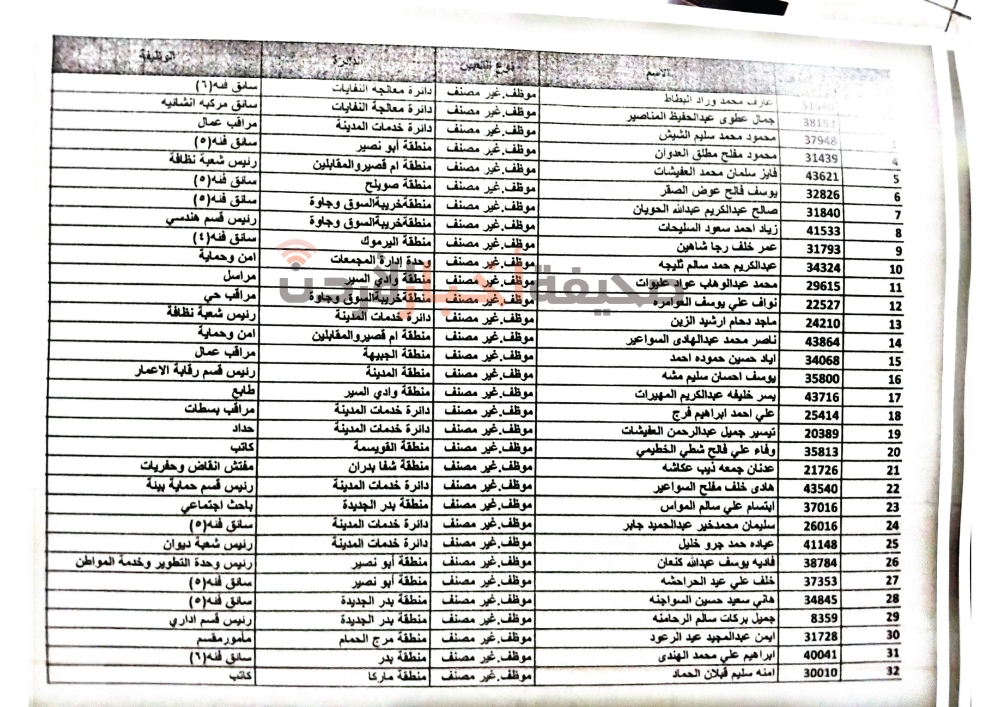 الاسم نوع التعيين الدائرة الوظيفة
51640 عارف محمد وراد البطاط موظف.غير مصنف دائرة معالجة النفايات سائق فئه(٦)
38153 جمال عطوى عبدالحفيظ المناصير موظف.غير مصنف دائرة معالجة النفايات سائق مركبه انشائيه
3 37948 محمود محمد سليم الشيش موظف.غير مصنف دائرة خدمات المدينة مراقب عمال
4 31439 محمود مفلح مطلق العدوان موظف.غير مصنف منطقة أبو نصير سائق فئه(٥)
5 43621 فايز سلمان محمد العفيشات موظف.غير مصنف منطقة ام قصيروالمقابلين رئيس شعبة نظافة
6 32826 يوسف فالح عوض الصقر موظف.غير مصنف منطقة صويلح سائق فئه(٥)
7 31840 صالح عبدالكريم عبدالله الحويان موظف.غير مصنف منطقةخريبةالسوق وجاوة سائق فئه(٥)
8 41533 زياد احمد سعود السليحات موظف.غير مصنف منطقةخريبةالسوق وجاوة رئيس قسم هندسي
9 31793 عمر خلف رجا شاهين موظف.غير مصنف منطقة اليرموك سائق فئه(٤)
10 34324 عبدالكريم حمد سالم ثليجه موظف.غير مصنف وحدة إدارة المجمعات امن وحماية
11 29615 محمد عبدالوهاب عواد عليوات موظف.غير مصنف منطقة وادي السير مراسل
12 22527 نواف علي يوسف العوامره موظف.غير مصنف منطقةخريبةالسوق وجاوة مراقب حي
13 24210 ماجد دحام ارشيد الزين موظف.غير مصنف دائرة خدمات المدينة رئيس شعبة نظافة
14 43864 ناصر محمد عبدالهادى السواعير موظف.غير مصنف منطقة ام قصيروالمقابلين امن وحماية
15 34068 اياد حسين حموده احمد موظف.غير مصنف منطقة الجبيهة مراقب عمال
16 35800 يوسف احسان سليم مشه موظف.غير مصنف منطقة المدينة رئيس قسم رقابة الاعمار
17 43716 يسر خليفه عبدالكريم المهيرات موظف.غير مصنف منطقة وادي السير طابع
18 25414 علي احمد ابراهيم فرج موظف.غير مصنف دائرة خدمات المدينة مراقب بسطات
19 20389 تيسير جميل عبدالرحمن العفيشات موظف.غير مصنف دائرة خدمات المدينة حداد
20 35813 وفاء علي فالح شطي الخطيمي موظف.غير مصنف منطقة القويسمة كاتب
21 21726 عدنان جمعه ذيب عكاشه موظف.غير مصنف منطقة شفا بدران مفتش انقاض وحفريات
22 43540 هادى خلف مفلح السواعير موظف.غير مصنف دائرة خدمات المدينة رئيس قسم حماية بيئة
23 37016 ابتسام علي سالم المواس موظف.غير مصنف منطقة بدر الجديدة باحث اجتماعي
24 26016 سليمان محمدخير عبدالحميد جابر موظف.غير مصنف دائرة خدمات المدينة سائق فئه(٥)
25 41148 عياده حمد جرو خليل موظف.غير مصنف دائرة خدمات المدينة رئيس شعبة ديوان
26 38784 فاديه يوسف عبدالله كنعان موظف.غير مصنف منطقة أبو نصير رئيس وحدة التطوير وخدمة المواطن
27 37353 خلف علي عيد الحراحشه موظف.غير مصنف منطقة أبو نصير سائق فئه(٥)
28 34845 هاني سعيد حسين السواجنه موظف.غير مصنف منطقة بدر الجديدة سائق فئه(٥)
29 8359 جميل بركات سالم الرحامنه موظف.غير مصنف منطقة بدر الجديدة رئيس قسم اداري
30 31728 ايمن عبدالمجيد عبد الرعود موظف.غير مصنف منطقة مرج الحمام مأمورمقسم
31 40041 ابراهيم علي محمد الهندى موظف.غير مصنف منطقة بدر سائق فئه(٦)
32 30010 امنه سليم قبلان الحماد موظف.غير مصنف منطقة ماركا كاتب
صحيفة أخبار الأردن